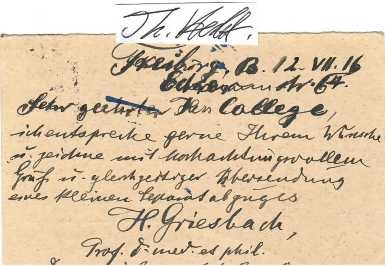 Freiburg, B. 12 VII. 16
str. 64.
Sehr geehrter Herr College,
ich entspreche gerne Ihrem Wunsche
u. zeichne mit hochachtungsvollem
Gruß u. gleichzeitiger Übersendung
eines kleinen Separatabzuges
H. Griesbach,
Prof. d. med. et phil.